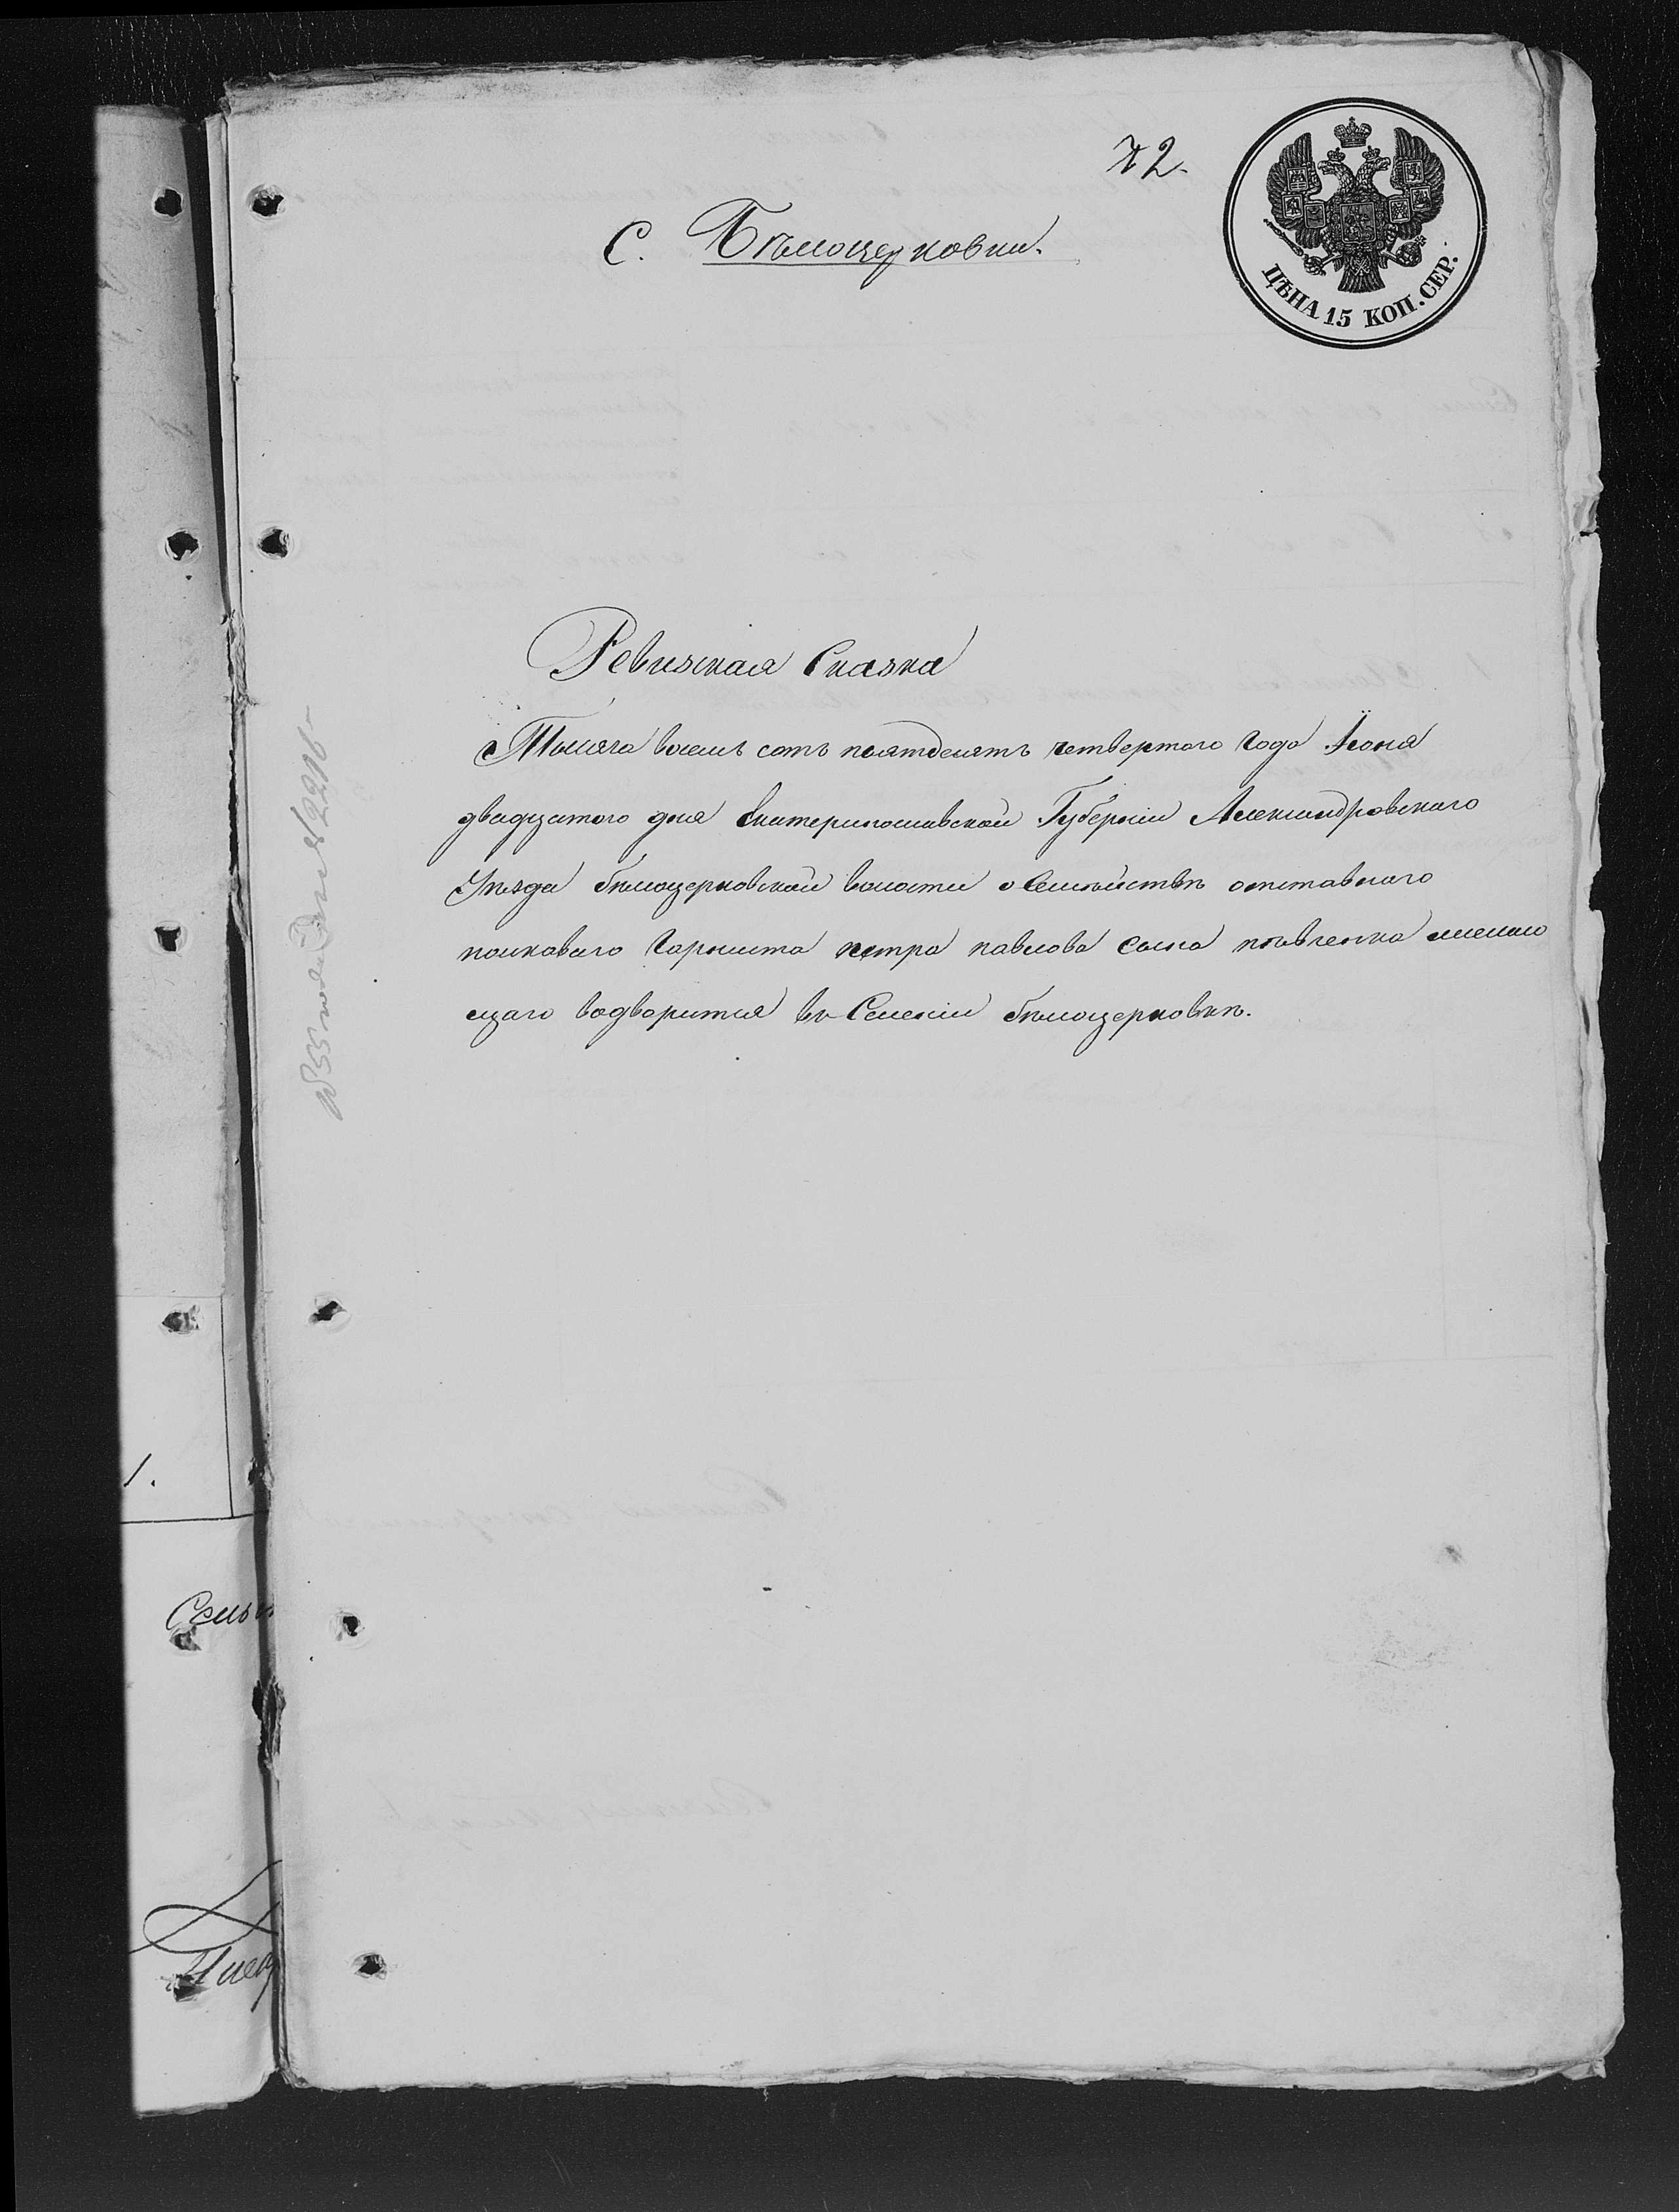 72.
С. Бѣлоцерковки.
ЦѢНА 15 КОП. СЕР.
Ревизская Сказка
Тысяча восемь сотъ пятдесятъ четвертого Года Іюня
двадцатого дня Екатеринославской Губерніи Александровскаго
Уѣзда бѣлоцерковской волости о Семѣйствѣ отставнаго
полковаго Горниста петра павлова Сына
щаго водворится въ Селеніи бѣлоцерковкѣ.
1.